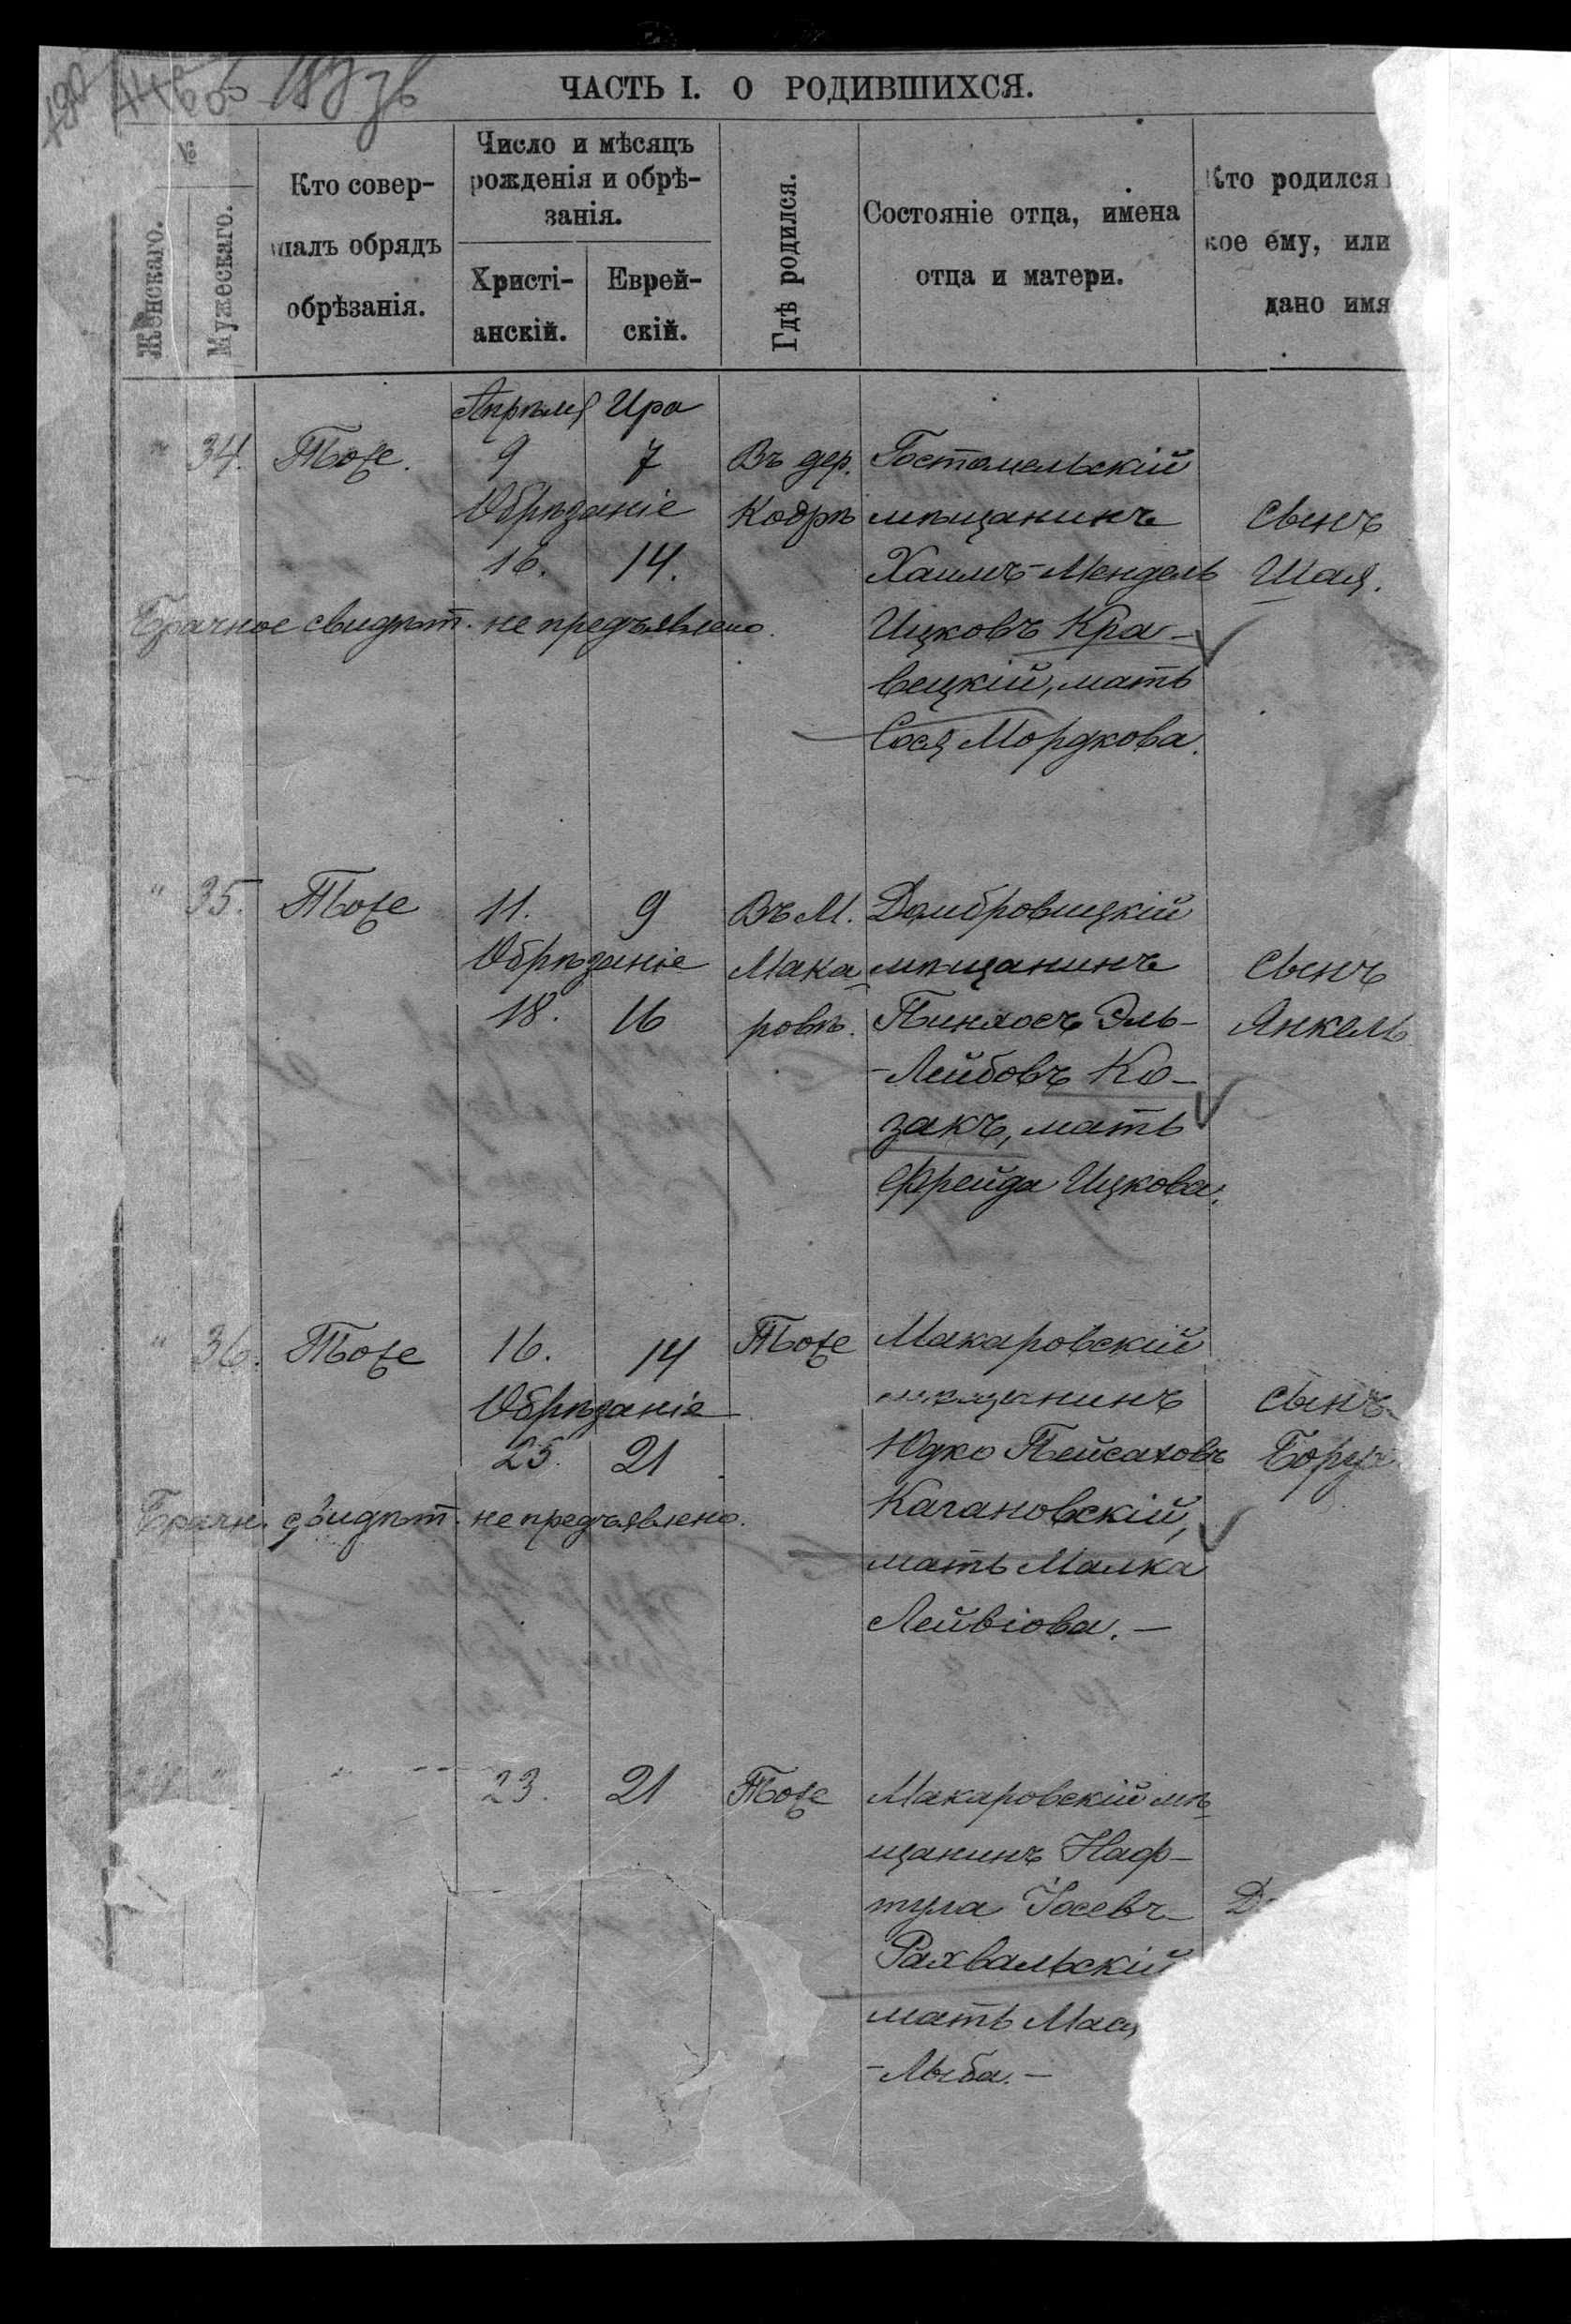 ЧАСТЬ I. О РОДИВШИХСЯ.
№
Женскаго.
Мужескаго.
Кто совер-
шалъ обрядъ
обрѣзанія.
Число и мѣсяцъ
рожденія и обрѣ-
занія.
Христі-
анскій.
Еврей-
скій.
Гдѣ родился.
Состояніе отца, имена
отца и матери.
Кто родился
кое ему, или
дано имя
Апрѣля Ира
" 34. Тоже. 9 7 Въ дер. Гостомельскій
Обрѣзаніе Кодрѣ мѣщанинъ сынъ
16. 14. Хаимъ-Мендель Шая.
Брачное свидѣт. не предъявлено. Ицковъ Кра-
вецкій, мать
Сося Мордкова.
" 35. Тоже 11. 9 Въ М. Домбровицкій
Обрѣзаніе Мака- мѣщанинъ сынъ
18. 16 ровѣ. Пинхосъ Эль-
Янкель
-Лейбовъ Ко-
закъ, мать
Фрейда Ицкова.
" 36. Тоже 16. 14 Тоже Макаровскій
Обрѣзаніе мѣщанинъ сынъ
21 Юдко Пейсаховъ
Брачн. свидѣт. не предъявлено. Кагановскій,
мать Малка
Лейвіова. —
23. 21 Тоже Макаровскій мѣ-
щанинъ Наф-
тула Іосевъ
Рахвальскій
мать
-Лыба. —